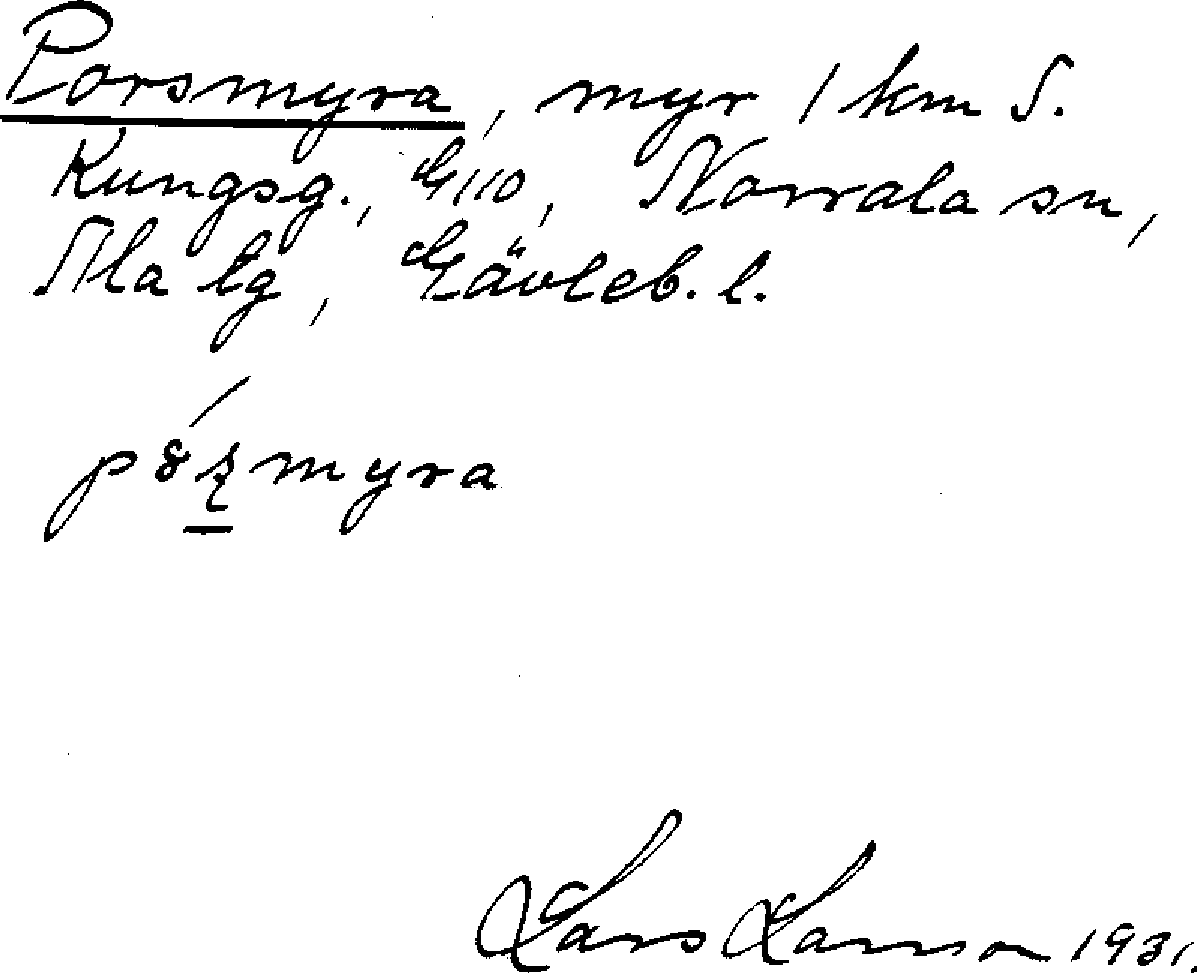 Porsmyra, myr 1 km S.
Kungsg., G110, Norrala sn,
Ala tg, Gävleb. l.
Lars Larsson 1931.